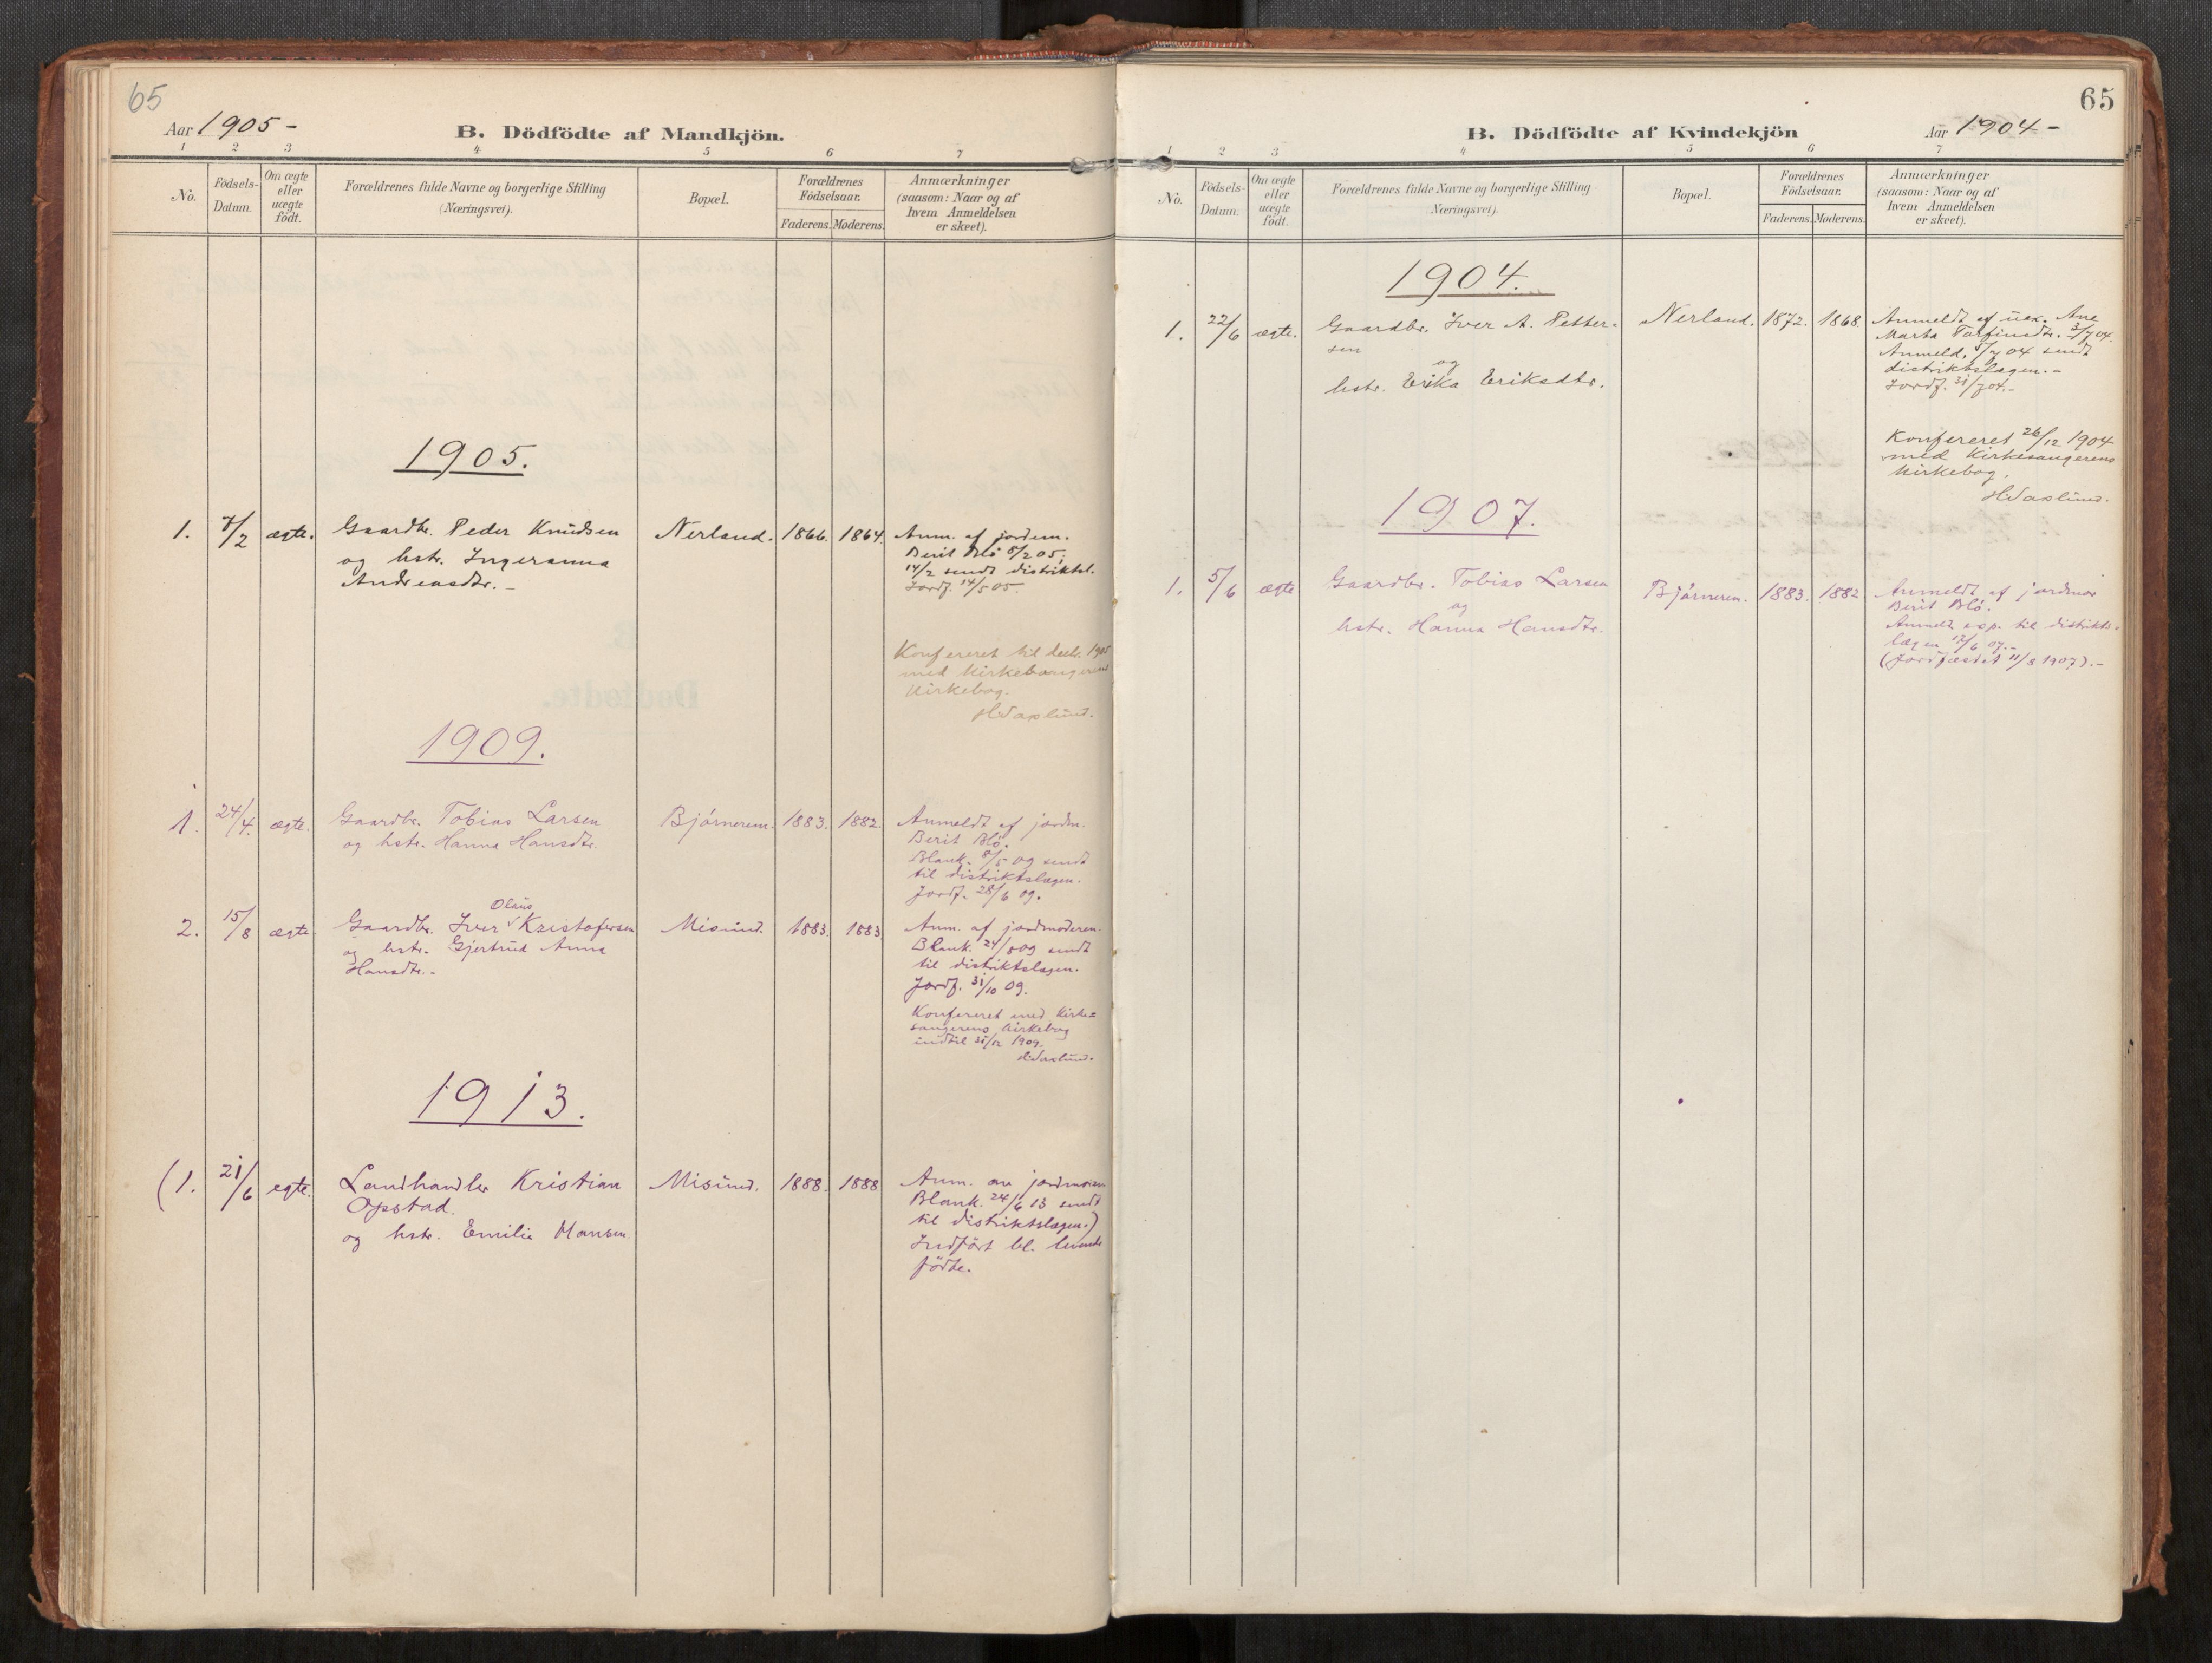 65
Aar 1905 -
B. Dödfödte af Mandkjön.
1 2 3 4 5 6 7
No.
Födsels-
Datum.
Om ægte
eller
uægte
födt.
Forældrenes fulde Navne og borgerlige Stilling
(Næringsvei).
Bopæl.
Forældrenes
Födselsaar.
Faderens. Moderens.
Anmærkninger
(saasom: Naar og af
hvem Anmeldelsen
er skeet).
1905.
1. 7/2 ægte. Gaardbr. Peder Knudsen
og hstr. Ingeranna
Andreasdtr. -
Nerland. 1866. 1864.
Anm. af jordem.
Berit Blö 8/2 05.
14/2 sendt distriktsl.
Jordf. 14/5 05.
Konfereret til decbr. 1905
med Kirkesangerens
Kirkebog.
H. Vaslund.
1909.
1. 24/4. ægte. Gaardbr. Tobias Larsen
og hstr. Hanna Hansdtr.
Bjørnerem. 1883. 1882.
Anmeldt af jordm.
Berit Blö.
Blank. 8/5 09 sendt
til distriktslægen.
Jordf. 28/6 09.
2. 15/8 ægte Gaardbr. Iver Olaus Kristofersen
og hstr. Gjertrud Anna
Hansdtr. -
Misund. 1883. 1883
Anm. af jordmoderen.
Blank. 24/8 09 sendt
til distriktslægen.
Jordf. 31/10 09.
Konfereret med Kirke=
sangerens Kirkebog
indtil 31/12 1909.
H. Vaslund.
1913.
(1. 21/6 egte. Landhandler Kristian
Opstad.
og hstr. Emilie Hansen.
Misund. 1888. 1888
Anm. av jordmoren
Blank. 24/6 13 sendt
til distriktslægen.)
Indført bl. levende
fødte.
65
B. Dödfödte af Kvindekjön
Aar 1904 -
1 2 3 4 5 6 7
No.
Födsels-
Datum.
Om ægte
eller
uægte
födt.
Forældrenes fulde Navne og borgerlige Stilling
(Næringsvei).
Bopæl.
Forældrenes
Födselsaar.
Faderens. Moderens.
Anmærkninger
(saasom: Naar og af
hvem Anmeldelsen
er skeet).
1904.
1. 22/6 ægte. Gaardbr. Iver A. Petter=
sen
og
hstr. Erika Eriksdtr.
Nerland. 1872. 1868.
Anmeldt af uex. Ane
Marta Torfinsdtr. 3/7 04.
Anmeld. 5/7 04 sendt
distriktslægen. -
Jordf. 31/7 04. -
Konfereret 26/12 1904
med Kirkesangerens
Kirkebog.
H. Vaslund.
1907.
1. 5/6 ægte Gaardbr. Tobias Larsen
og
hstr. Hanna Hansdtr.
Bjørnerem. 1883. 1882
Anmeldt af jordmor
Berit Blö.
Anmeld. exp. til distrikts=
lægen 17/6 07. -
(Jordfæstet 11/8 1907). -